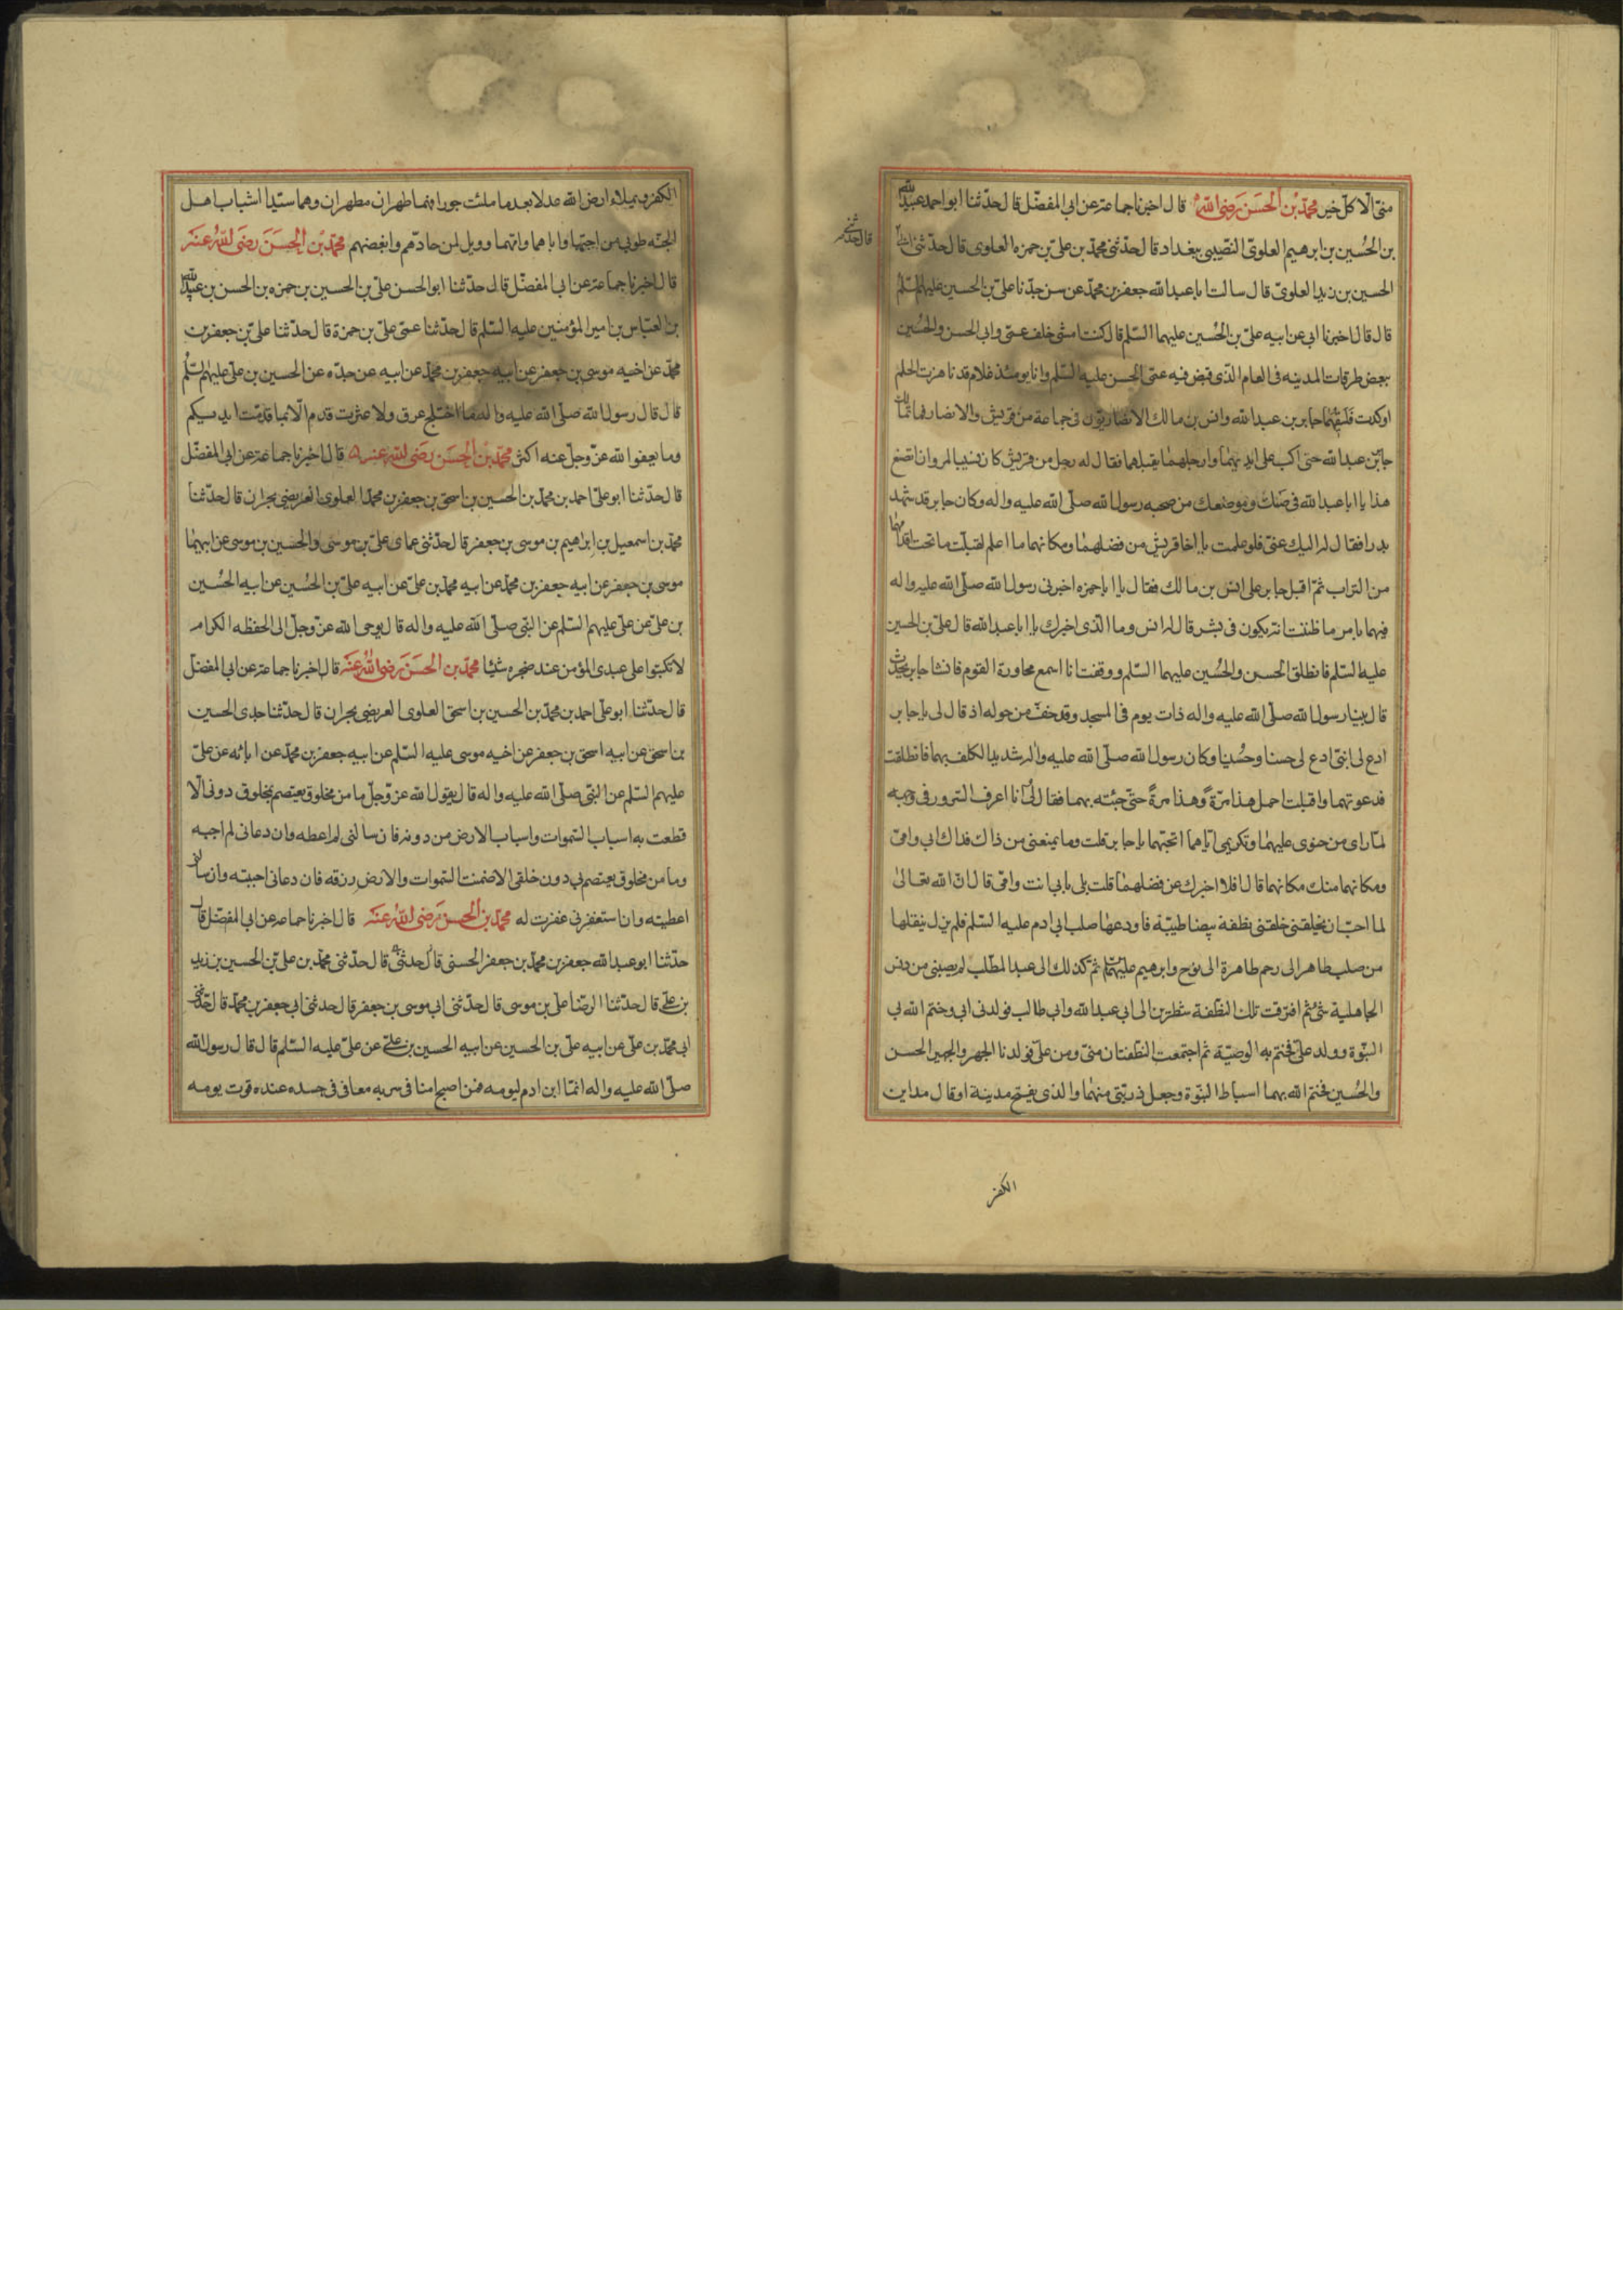 منى الا كل خير محمد بن الحسن رضى الله قال اخبرنا جماعة عن ابي المفضل قال حدثنا ابو احمد عبيد الله
بن الحسين بن ابرهيم العلوى النصيبى ببغداد قال حدثنى محمد بن على بن حمزه العلوى قال حدثنى
قال حدثنى
الحسين بن زيد العلوى قال سالت ابا عبد الله جعفر بن محمد عن سن جدنا على بن الحسين عليهم السلم
قال قال اخبرنا ابى عن ابيه على بن الحسين عليهما السلم قال كنت امشى خلف عمى وابى الحسن والحسين
ببعض طرقات المدينه فى العام الذى قبض فيه عمى الحسن عليه السلم وانا يومئذ غلام قد ناهزت الحلم
او كدت فلقيهما جابر بن عبد الله وانس بن مالك الانصاريون فى جماعة من قريش والانصار فما تمالك
جابر بن عبد الله حتى اكب على ايديهما وارجلهما يقبلهما فقال له رجل من قريش كان نسيبا لمروان اتصنع
هذا يا ابا عبد الله فى سنك وموضعك من صحبه رسول الله صلى الله عليه واله وكان جابر قد شهد
بدرا فقال له اليك عنى فلو علمت يا اخا قريش من فضلهما ومكانهما ما اعلم لقبلت ما تحت اقدامهما
من التراب ثم اقبل جابر على انس بن مالك فقال يا ابا حمزه اخبرنى رسول الله صلى الله عليه واله
فيهما بامر ما ظننت انه يكون فى بشر قال له انس وما الذى اخبرك يا ابا عبد الله قال على بن الحسين
عليه السلم فانطلق الحسن والحسين عليهما السلم ووقفت انا اسمع محاورة القوم فانشا جابر يحدث
قال بينا رسول الله صلى الله عليه واله ذات يوم فى المسجد وقد خف من حوله اذ قال لى يا جابر
ادع لى ابنى ادع لى حسنا وحسينا وكان رسول الله صلى الله عليه واله شديد الكلف بهما فانطلقت
فدعوتهما واقبلت احمل هذا مرة وهذا مرة حتى جئته بهما فقال لى انا اعرف السرور فى وجهه
لما راى من حنوى عليهما وتكريمى اياهما اتحبهما يا جابر قلت وما يمنعنى من ذاك فداك ابى وامى
ومكانهما منك مكانهما قال افلا اخبرك عن فضلهما قلت بلى بابى انت وامى قال ان الله تعالى
لما احب ان يخلقنى خلقنى نطفة بيضا طيبة فاودعها صلب ابى ادم عليه السلم فلم يزل ينقلها
من صلب طاهر الى رحم طاهرة الى نوح وابرهيم عليهما السلم ثم كذلك الى عبد المطلب لم يصبنى من دنس
الجاهلية شئ ثم افترقت تلك النطفة شطرين الى ابى عبد الله وابى طالب فولدنى ابى وختم الله بى
النبوة وولد على فختم به الوصية ثم اجتمعت النطفتان منى ومن على فولدنا الجهر والجهير الحسن
والحسين فختم الله بهما اسباط النبوة وجعل ذريتى منهما والذى يفتح مدينة او قال مداين
الكفر
الكفر ويملاء ارض الله عدلا بعد ما ملئت جورا فهما طهران مطهران وهما سيدا شباب اهل
الجنه طوبى من احبهما واباهما وامهما وويل لمن حادهم وابغضهم محمد بن الحسن رضى الله عنه
قال اخبرنا جماعة عن ابى المفضل قال حدثنا ابو الحسن على بن الحسين بن حمزه بن الحسن بن عبيد الله
بن العباس بن امير المؤمنين عليه السلم قال حدثنا عمى على بن حمزة قال حدثنا على بن جعفر بن
محمد عن اخيه موسى بن جعفر عن ابيه جعفر بن محمد عن ابيه عن جده عن الحسين بن على عليهم السلم
قال قال رسول الله صلى الله عليه واله ما اختلج عرق ولا عثرت قدم الا بما قدمت ايديكم
وما يعفوا لله عز وجل عنه اكثر محمد بن الحسن رضى الله عنه قال اخبرنا جماعة عن ابى المفضل
قال حدثنا ابو على احمد بن محمد بن الحسين بن اسحق بن جعفر بن محمد العلوى العريضى بحران قال حدثنا
محمد بن اسمعيل بن ابراهيم بن موسى بن جعفر قال حدثنى عماى على بن موسى والحسين بن موسى عن ابيهما
موسى بن جعفر عن ابيه جعفر بن محمد عن ابيه محمد بن على عن ابيه على بن الحسين عن ابيه الحسين
بن على عن على عليهم السلم عن النبى صلى الله عليه واله قال يوحى الله عز وجل الى الحفظه الكرام
لا تكتبوا على عبدى المؤمن عند ضجره شيئا محمد بن الحسن رضى الله عنه قال اخبرنا جماعة عن ابى المفضل
قال حدثنا ابو على احمد بن محمد بن الحسين بن اسحق العلوى العريضى بحران قال حدثنا جدى الحسين
بن اسحق عن ابيه اسحق بن جعفر عن اخيه موسى عليه السلم عن ابيه جعفر بن محمد عن ابائه عن على
عليهم السلم عن النبى صلى الله عليه واله قال يقول الله عز وجل ما من مخلوق يعتصم بمخلوق دونى الا
قطعت به اسباب السموات واسباب الارض من دونه فان سالنى لم اعطه وان دعانى لم اجبه
وما من مخلوق يعتصم بى دون خلقى الا ضمنت السموات والارض رزقه فان دعانى اجبته وان سالنى
اعطيته وان استغفرنى غفرت له محمد بن الحسن رضى الله عنه قال اخبرنا جماعة عن ابى المفضل قال
حدثنا ابو عبد الله جعفر بن محمد بن جعفر الحسنى قال حدثنى قال حدثنى محمد بن على بن الحسين بن زيد
بن على قال حدثنا الرضا على بن موسى قال حدثنى ابى موسى بن جعفر قال حدثنى ابى جعفر بن محمد قال حدثنى
ابى محمد بن على عن ابيه على بن الحسين عن ابيه الحسين بن على عن على عليه السلم قال قال رسول الله
صلى الله عليه واله انما ابن ادم ليومه فمن اصبح امنا فى سربه معافى فى جسده عنده قوت يومه